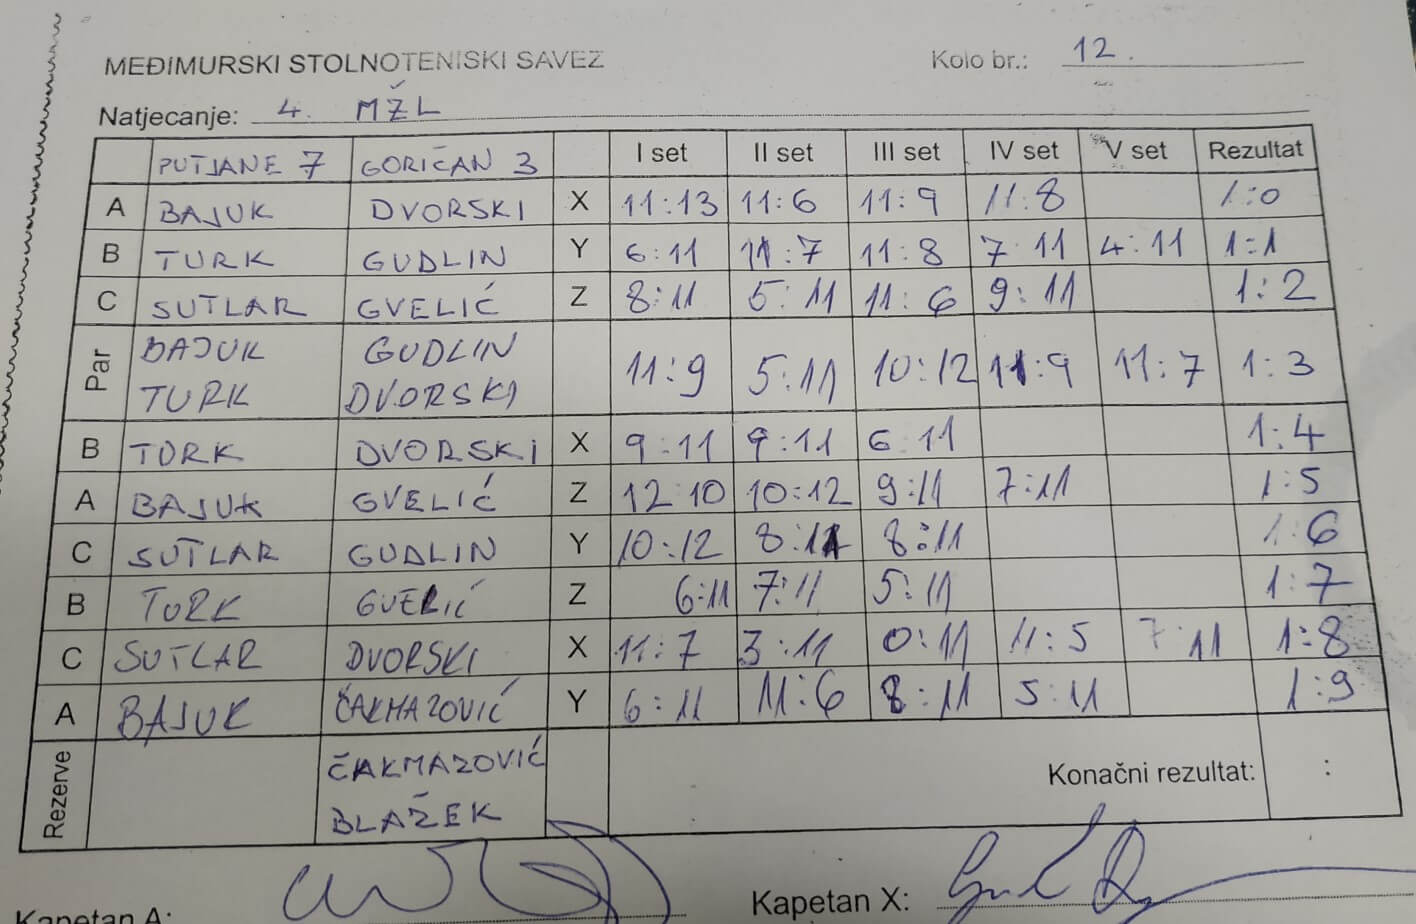 MEĐIMURSKI STOLNOTENISKI SAVEZ Kolo br.: 12.
Natjecanje: 4. MŽL
PUTJANE 7 GORIČAN 3 I set II set III set IV set V set Rezultat
A BAJUK DVORSKI X 11:13 11:6 11:9 11:8 1:0
B TURK GUDLIN Y 6:11 11:7 11:8 7:11 4:11 1:1
C SUTLAR GVELIĆ Z 8:11 5:11 11:6 9:11 1:2
Par BAJUK GUDLIN 11:9 5:11 10:12 11:9 11:7 1:3
TURK DVORSKI
B TURK DVORSKI X 9:11 9:11 6:11 1:4
A BAJUK GVELIĆ Z 12:10 10:12 9:11 7:11 1:5
C SUTLAR GUDLIN Y 10:12 8:11 8:11 1:6
B TURK GVELIĆ Z 6:11 7:11 5:11 1:7
C SUTLAR DVORSKI X 11:7 3:11 0:11 11:5 7:11 1:8
A BAJUK ČAKMAZOVIĆ Y 6:11 11:6 8:11 5:11 1:9
Rezerve ČAKMAZOVIĆ Konačni rezultat: :
BLAŽEK
Kapetan A: Kapetan X: